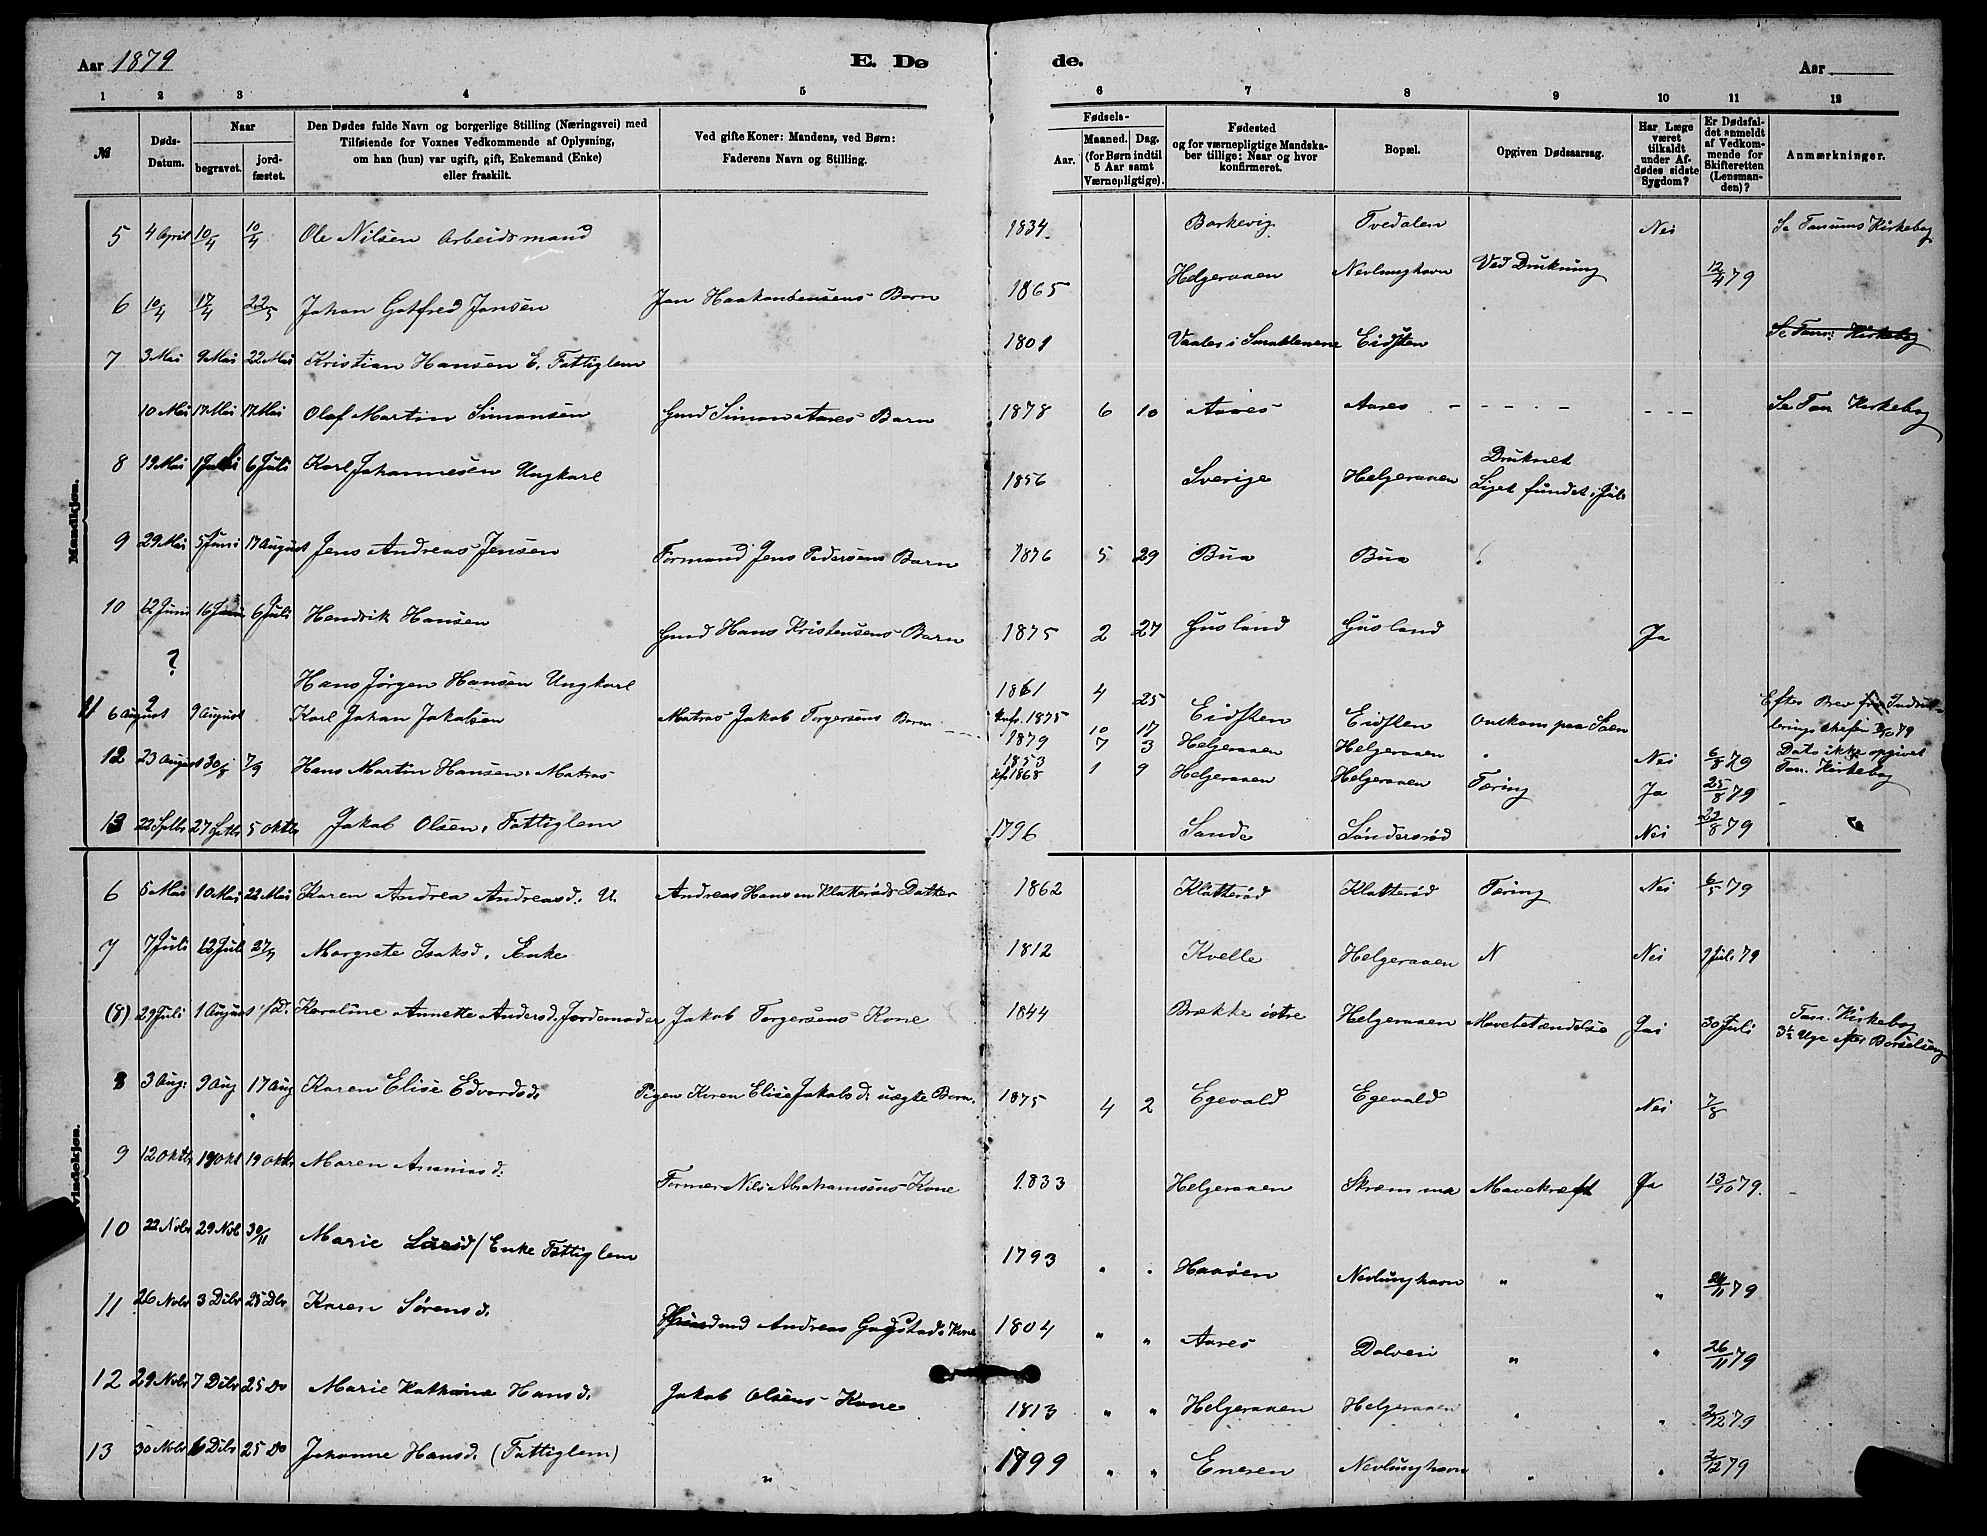 Aar 1879
E. Dø
de.
Aar
1 2 3 4 5 6 7 8 9 10 11 12
№ Døds-Datum. Naar begravet. jord-fæstet. Den Dødes fulde Navn og borgerlige Stilling (Næringsvei) med Tilføiende for Voxnes Vedkommende af Oplysning, om han (hun) var ugift, gift, Enkemand (Enke) eller fraskilt. Ved gifte Koner: Mandens, ved Børn: Faderens Navn og Stilling. Fødsels- Aar. Maaned. Dag. (for Børn indtil 5 Aar samt Værnepligtige). Fødested og for værnepligtige Mandska-ber tillige: Naar og hvor konfirmeret. Bopæl. Opgiven Dødsaarsag. Har Læge været tilkaldt under Af-dødes sidste Sygdom? Er Dødsfal-det anmeldt af Vedkom-mende for Skifteretten (Lensman-den)? Anmærkninger.
Mandkjøn.
5 4 April 10/4 10/4 Ole Nilsen Arbeidsmand 1834 Barkevig Tvedalen Nei Se Tanums Kirkebog
6 10/4 17/4 22/5 Johan Gotfred Jansen Jan Haakonbensens Barn 1865 Helgeraaen Nevlunghavn Ved Drukning 12/4 79
7 3 Mai 9 Mai 22 Mai Kristian Hansen E. Fattiglem 1801 Vaaler i Smaalenene Eidsten Se Tan: Kirkebog
10 Mai 17 Mai 17 Mai Olaf Martin Simonsen Gmd Simon Aares Barn 1878 6 10 Aares Aares - - - - - - - - Se Tan Kirkebog
8 19 Mai 1 Juli 6 Juli Karl Johannesen Ungkarl 1856 Sverige Helgeraaen Druknet Liget fundet i Juli
9 29 Mai 5 Juni 17 August Jens Andreas Jensen Formand Jens Pedersens Barn 1876 5 29 Bua Bua
10 12 Juni 16 Juni 6 Juli Hendrik Hansen Gmd Hans Kristensens Barn 1875 2 27 Gusland Gusland Ja
? Hans Jørgen Hansen Ungkarl 1861 4 25 Knf. 1875 Eidsten Eidsten Omkom paa Søen Efter Brev fra Indrul-leringschefen 79 Dato ikke opgivet
11 6 August 9 August Karl Johan Jakobsen Matros Jakob Torgersens Barn 1879 10 17 7 3 Helgeraaen Helgeraaen " Nei 6/8 79 Tan. Kirkebog
12 23 August 30/8 7/9 Hans Martin Hansen, Matros 1853 kf. 1868 1 9 Helgeraaen Helgeraaen Tæring Ja 25/8 79
13 22 Sptb 27 Sptb 5 Oktb Jakob Olsen, Fattiglem 1796 Sande Søndersrød Nei 22/8 79
Kvindekjøn.
6 5 Mai 10 Mai 22 Mai Karen Andrea Andreasd. U. Andreas Hansen Klatterøds Datter 1862 Klatterød Klatterød Tæring Nei 6/5 79
7 7 Juli 12 Juli 27/7 Margrete Isaksd. Enke 1812 Kvelle Helgeraaen N Nei 9 Juli 79
(8) 29 Juli 1 August s/D. Karoline Annette Andersd. Jordemoder Jakob Torgersens Kone 1844 Brække østre Helgeraaen Mavebetændelse Ja 30 Juli Tan. Kirkebog 3 Uge efter Barselseng
8 3 Aug: 9 Aug 17 Aug Karen Elise Edvardsd. Pigen Karen Elise Jakobsd: uægte Barn. 1875 4 2 Egevald Egevald Nei 7/8
9 12 Oktb 18 Okt 19 Oktb Maren Ananiasd. Former Nils Abrahamsens Kone 1833 Helgeraaen Skræmma Mavekræft Ja 13/10 79.
10 22 Novbr 29 Nov 30/11 Marie Larsd / Enke Fattiglem 1793 " " Haaøen Nevlunghavn " " 26/11 79
11 26 Novbr 3 Dcbr 25 Dcbr Karen Sørensd. Andreas Gagstads Kone 1804 " " Aares Dolven " " 26/11 79
12 29 Novbr 7 Dcbr 25 Do Marie Kathrine Hansd. Jakob Olsens Kone 1813 " " Helgeraaen Helgeraaen " " 2/12 79
13 30 Novbr 6 Dcbr 25 Do Johanne Hansd. (Fattiglem) " 1799 " " Enesen Nevlunghavn " " 2/12 79